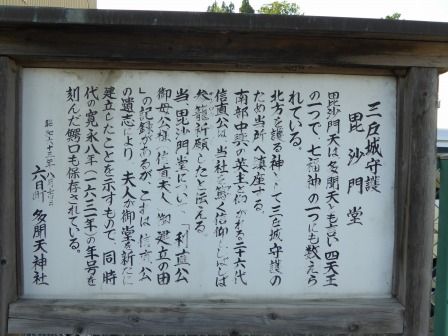 三戸城守護
毘沙門堂
毘沙門天は多聞天とも云い四天王
の一つで、七福神の一つにも数えら
れている。
北方を護る神として三戸城守護の
ため当所へ鎮座する。
南部中興の英主と仰がれる二十六代
信直公は、当社を篤く信仰ししばしば
参籠祈願したと伝える。
当毘沙門堂について、「利直公
御母公様(信直夫人)御建立の由
」の記録があるが、これは信直公
の遺志により、夫人が御堂を新たに
建立したことを示すもので、同時
代の寛永八年(一六三一年)の年号を
刻んだ鰐口も保存されている。
昭和六十三年八月
六日町 多聞天神社